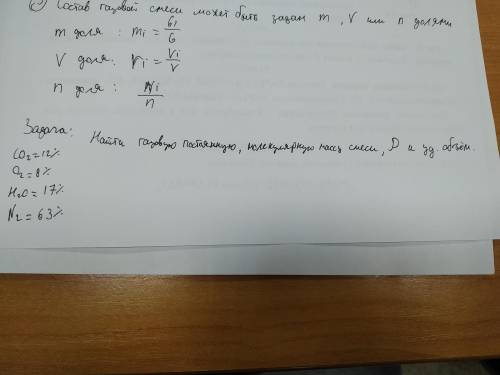 Состав газовой смеси может быть задан m, V или n долями
m доля : mi = Gi/G
V доля: ri = Vi/V
n доля : Ni/n
Задача: Найти газовую постоянную, молекулярную массу смеси, D и уд. объём.
CO2 = 12%
O2 = 8%
H2O = 17%
N2 = 63%